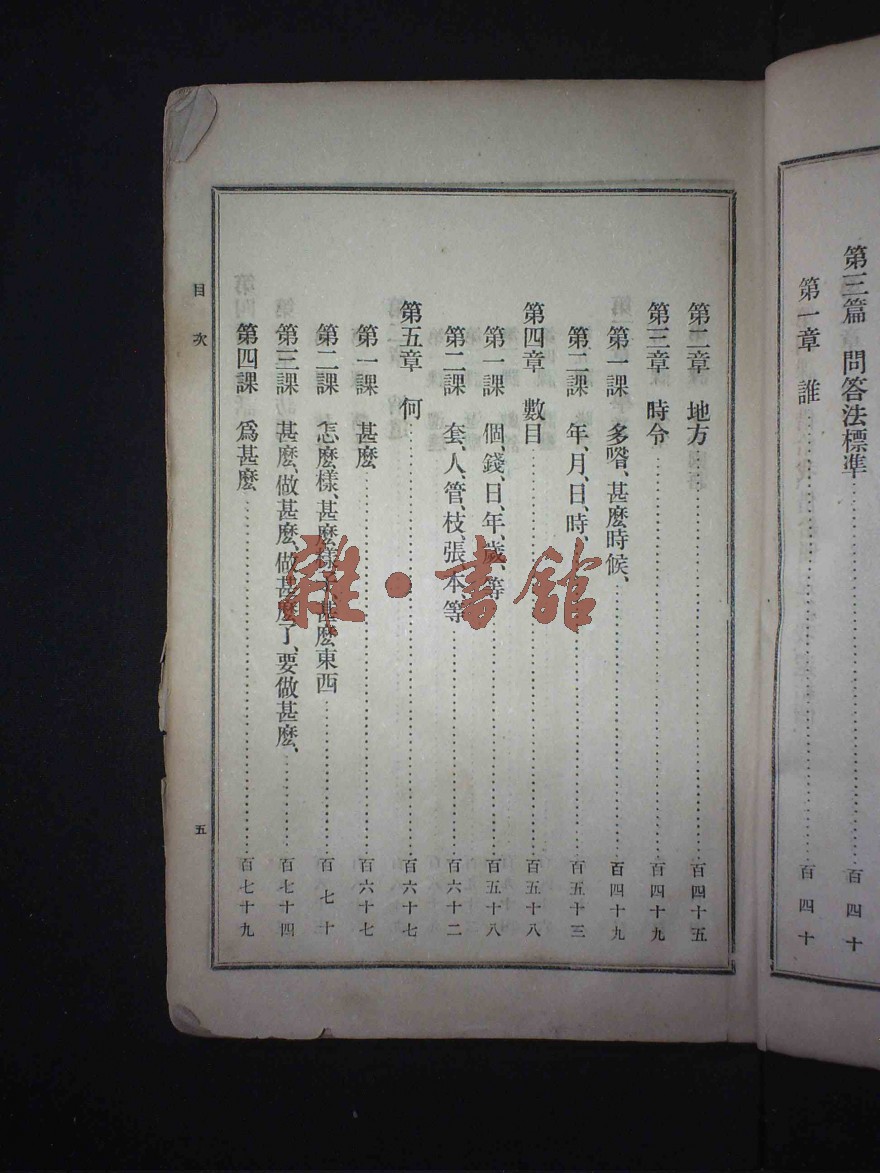 第三篇 問答法標準……百四十
第一章 誰……百四十
第二章 地方……百四十五
第三章 時令……百四十九
第一課 多喒、甚麼時候、……百四十九
第二課 年、月、日、時、……百五十三
第四章 數目……百五十八
第一課 個、錢、日、年、歲、等……百五十八
第二課 套、人、管、枝、張、本、等……百六十二
第五章 何……百六十七
第一課 甚麼……百六十七
第二課 怎麼樣、甚麼樣子、甚麼東西……百七十
第三課 甚麼、做甚麼、做甚麼了、要做甚麼、……百七十四
第四課 爲甚麼……百七十九
目次
五
雜·書館